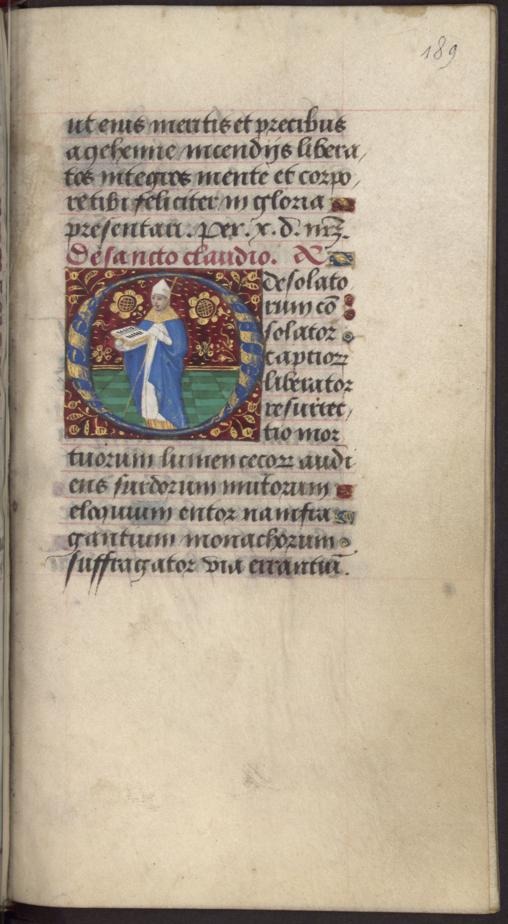 189
ut eius meritis et precibus
a gehenne incendijs libera
tos integros mente et corpo
re tibi feliciter in gloria
presentari. per. x. d. nr̄ꝫ.
De sancto claudio. A
O desolato
rum cō
solator
captiuoꝝ
liberator
resurrec
tio mor
tuorum lumen cecoꝝ audi
ens surdorum mutorum
eloquium tutor naufra
gantium monachorum
suffragator via errantiū.